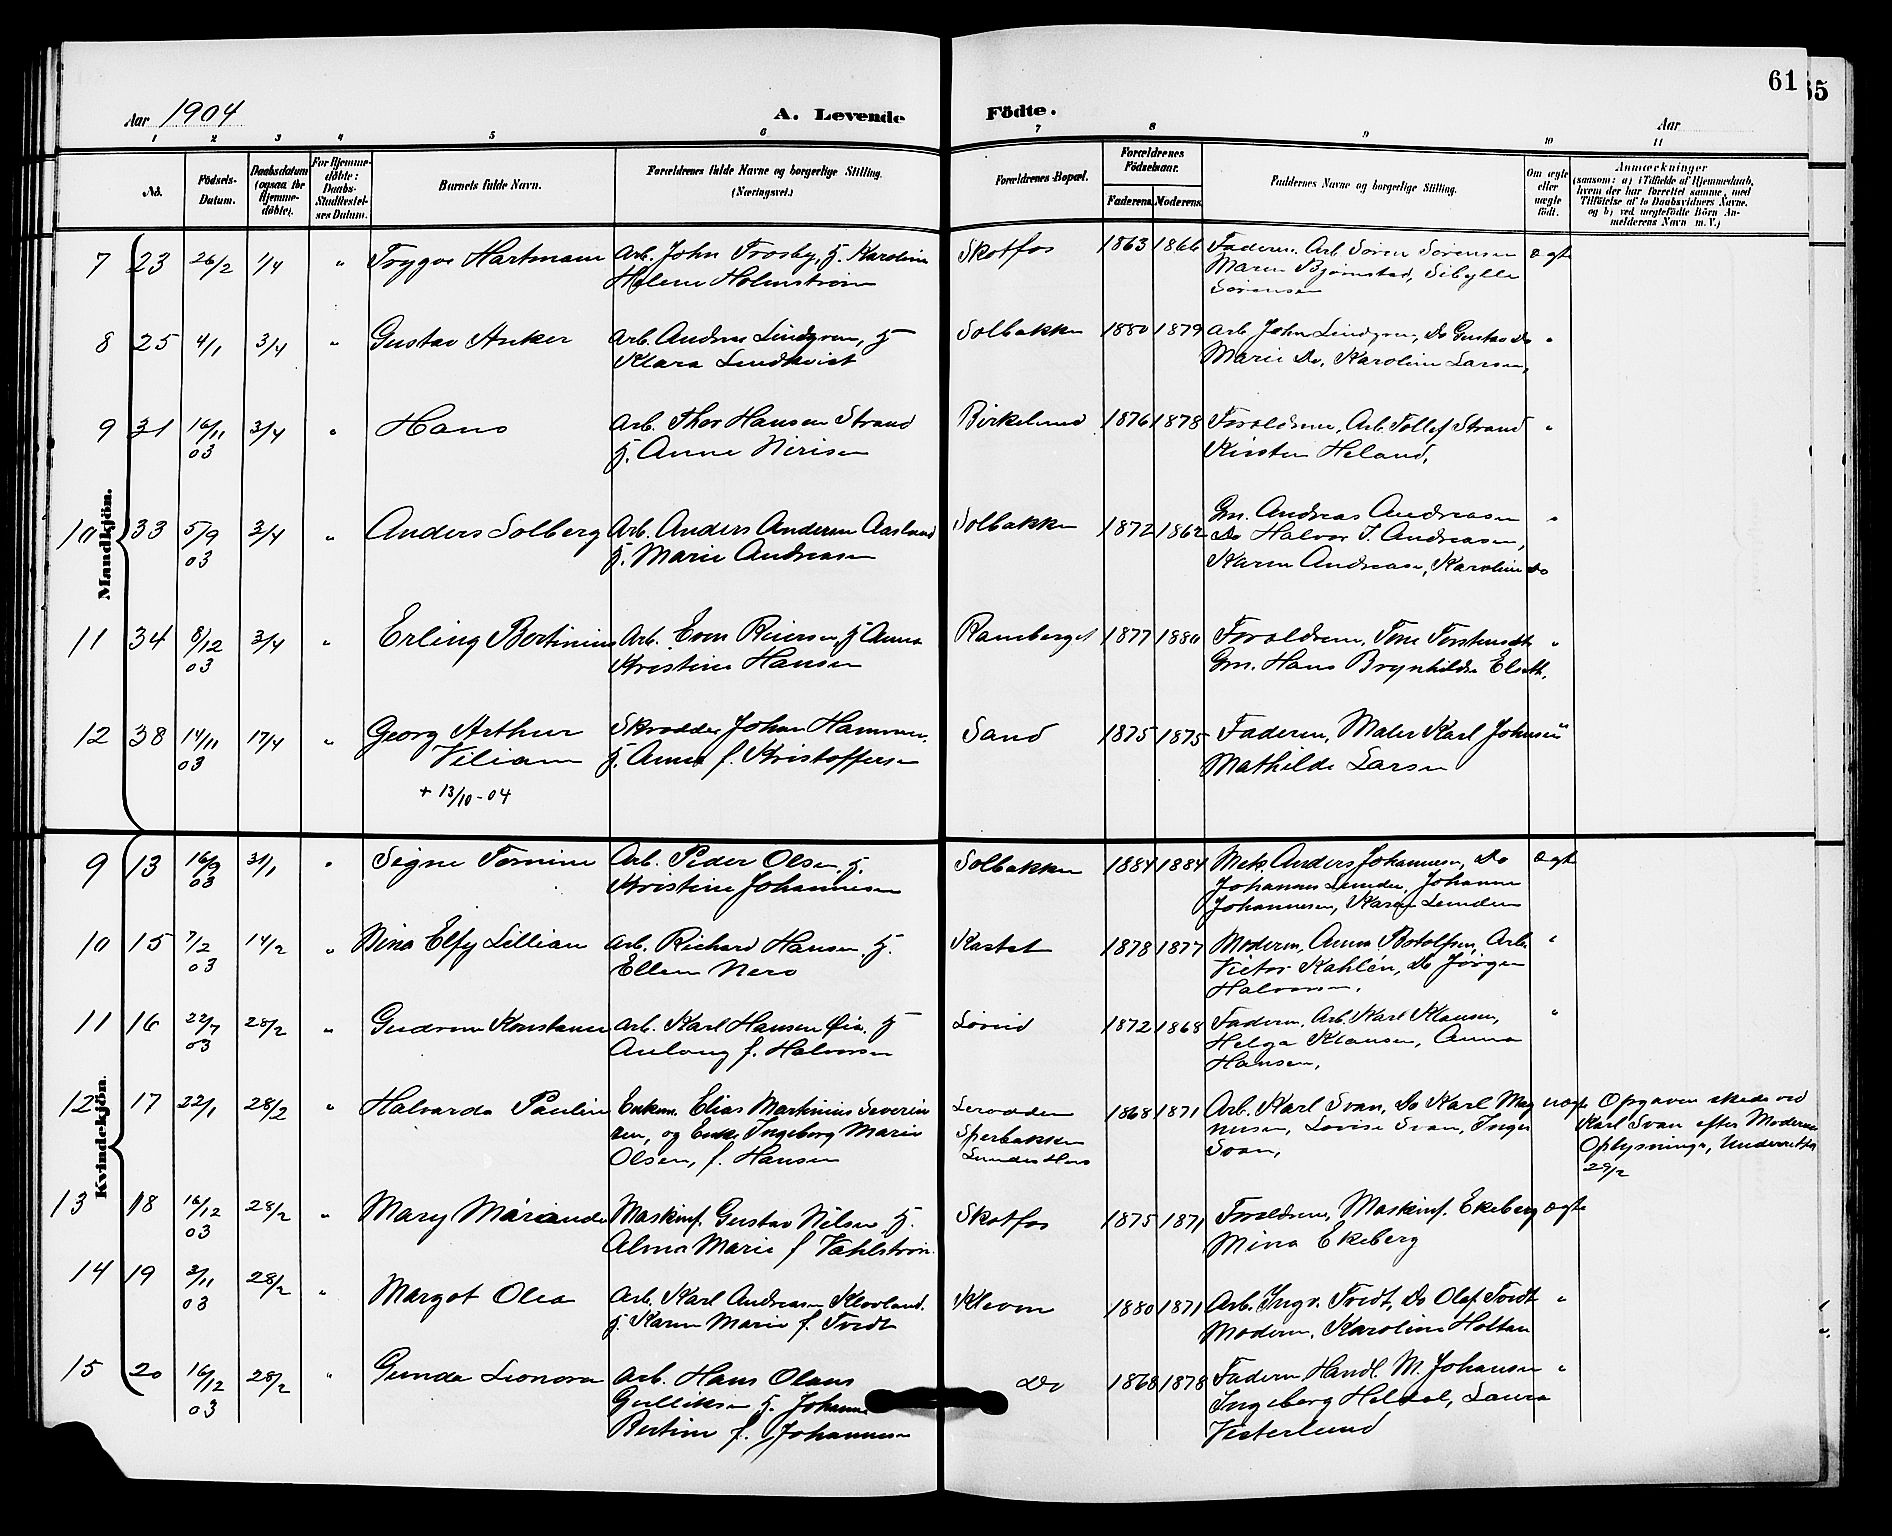 61
35
Aar 1904
A. Levende Födte.
Aar
1 2 3 4 5 6 7 8 9 10 11
No. Födsels-Datum. Daabsdatum (ogsaa for Hjemme-döbte). For Hjemme-döbte: Daabs-Stadfæstel-ses Datum. Barnets fulde Navn. Forældrenes fulde Navne og borgerlige Stilling. (Næringsvei.) Forældrenes Bopæl. Forældrenes Födselsaar. Faderens. Moderens. Faddernes Navne og borgerlige Stilling. Om ægte eller uægte födt. Anmærkninger (saasom: a) i Tilfælde af Hjemmedaab, hvem der har forrettet samme, med Tilföielse af to Daabsvidners Navne, og b) ved uægtefödte Börn Anmelderens Navn m. V.)
Mandkjön.
7 23 26/2 1/4 " Trygve Hartmann Arb. John Frosby, H. Karoline Skotfos 1863 1866 Faderen, Arb Sören Sörensen ægte
Helene Holmström Maren Björnstad, Sibylle
Sörensen
8 25 4/1 3/4 " Gustav Anker Arb. Andreas Lindgren, H Solbakken 1880 1879 Arb. John Lindgren, Do Gustav Do "
Klara Lindkvist Marie Do, Karoline Larsen,
9 31 16/11 03 3/4 " Hans Arb. Thor Hansen Strand Birkelund 1876 1878 Forældrene, Arb. Tollef Strand "
H. Anne Nirisen Kirsten Heland,
10 33 5/9 03 3/4 " Anders Solberg Arb. Anders Andersen Aasland Solbakken 1872 1862 Gm. Andreas Andreasen "
H. Marie Andreasen Do Halvor J. Andreasen,
Karen Andreasen, Karoline Do
11 34 8/12 03 3/4 " Erling Bertinius Arb. Even Reiersen, H Anna Ramberget 1877 1880 Forældrene, Tone "
Kristine Hansen Gm. Hans Brynhildsen Elseth,
12 38 14/11 03 17/4 " Georg Arthur Skrædder Johan Hammer, Sand 1875 1875 Faderen, Maler Karl Johnsen "
Viliam H. Anna f. Kristoffersen Mathilde Larsen
+ 13/10-04
Kvindekjön.
9 13 16/9 03 31/1 " Signe Tomine Arb. Peder Olsen, H. Solbakken 1884 1884 Mek. Anders Johannesen, Do ægte
Kristine Johannesen Johannes Lunden, Johanne
Johannesen, Karen Lunden
10 15 7/2 03 14/2 " Nina Elfy Lillian Arb. Richard Hansen, H. Kastet 1878 1877 Moderen, Anna Botolfsen, Arb. "
Ellen Nero Victor Kahlén, Do Jörgen
Halvorsen,
11 16 22/7 03 28/2 " Gudrun Konstanse Arb. Karl Hansen Öia, H Löveid 1872 1868 Faderen, Arb. Karl Klausen, "
Anlaug f. Halvorsen Helga Klausen, Anna
Hansen,
12 17 22/1 28/2 " Halvarda Pauline Enkem. Elias Martinius Severin 1868 1871 Arb. Karl Svan, Do Karl Mag uægte Opgaven skede ved
sen, og Enke Ingeborg Marie Sperbakken nussen, Lovise Svan, Inger Karl Svan efter Moderens
Olsen, f. Hansen Svan, Oplysninger, Underrettet
29/2
13 18 16/12 03 28/2 " Mary Mariande Maskinf. Gustav Nilsen, H. Skotfos 1875 1871 Forældrene, Maskinf. Ekeberg ægte
Alma Marie f Vahlström Mina Ekeberg
14 19 3/11 03 28/2 " Margot Olea Arb. Karl Andreasen Klovland. Kleven 1880 1871 Arb. Ingv. Tvedt, Do Olaf Tvedt "
H. Karen Marie f. Tvedt Moderen, Karoline Holtan
15 20 16/12 03 28/2 " Gunda Leonora Arb. Hans Olaus Do 1868 1878 Faderen Handl. M. Johansen "
Gulliksen H. Johanne Ingeborg Heldal, Laura
Bertine f. Johannesen Vesterlund